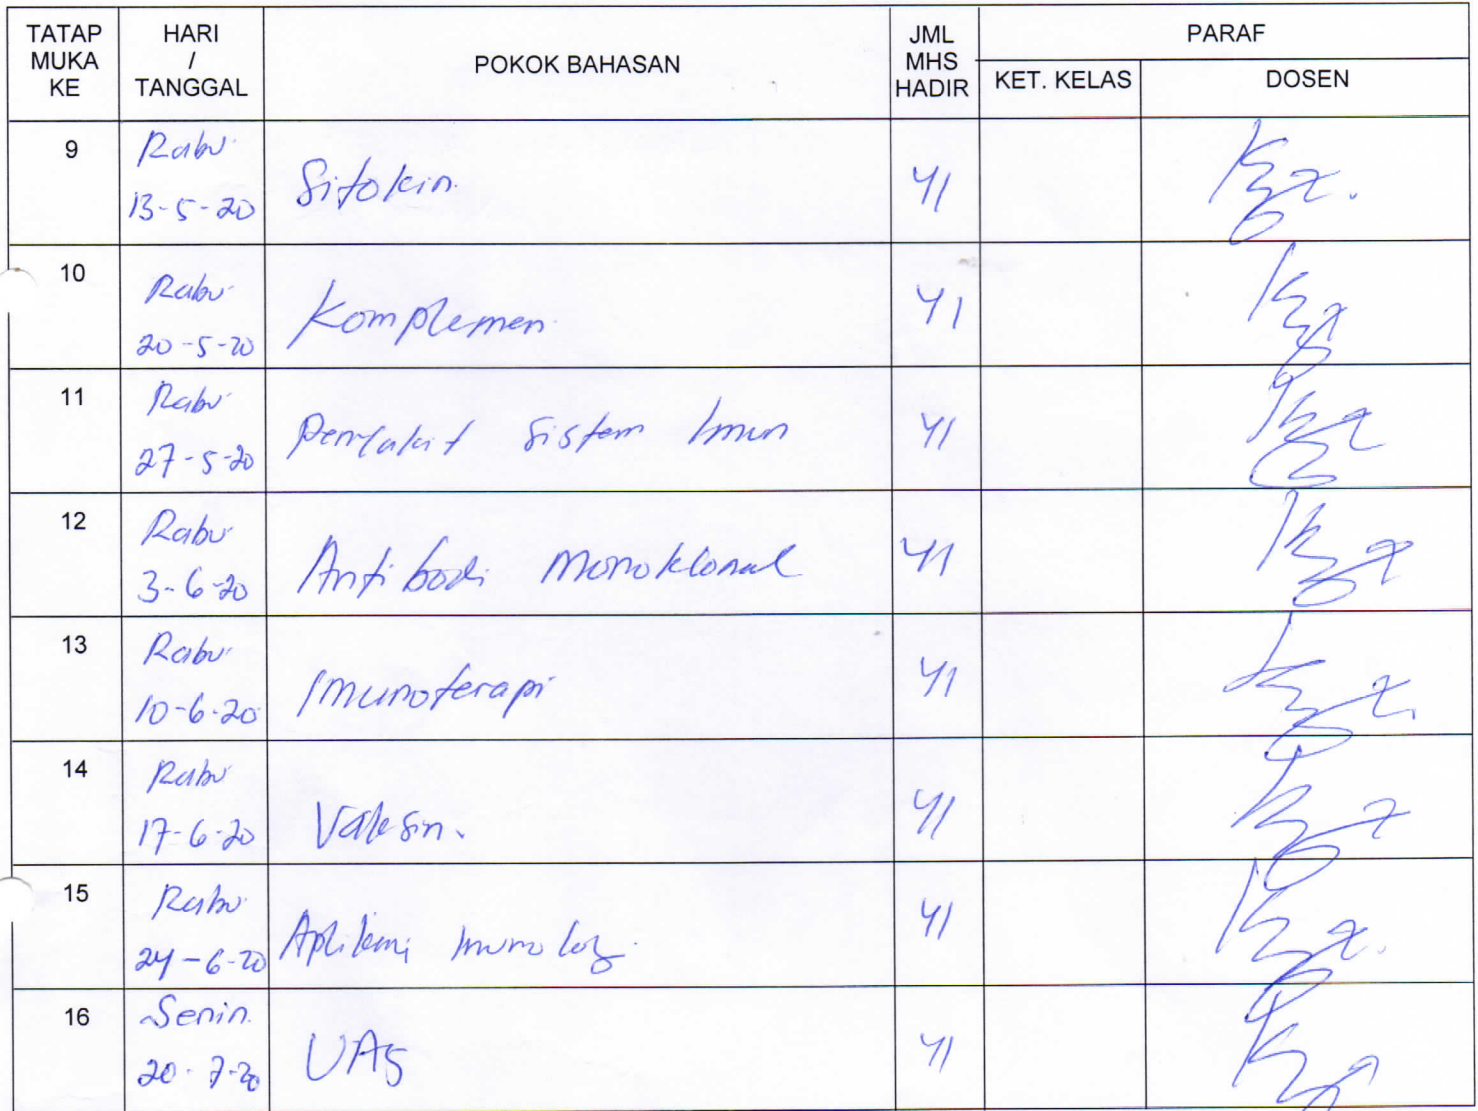 TATAP MUKA KE HARI / TANGGAL POKOK BAHASAN JML MHS HADIR PARAF
KET. KELAS DOSEN
9 Rabu 13-5-20 Sitokin 41
10 Rabu 20-5-20 Komplemen 41
11 Rabu 27-5-20 Penyakit Sistem Imun 41
12 Rabu 3-6-20 Antibodi Monoklonal 41
13 Rabu 10-6-20 Imunoterapi 41
14 Rabu 17-6-20 Vaksin. 41
15 Rabu 24-6-20 41
16 Senin 20-7-20 UAS 41